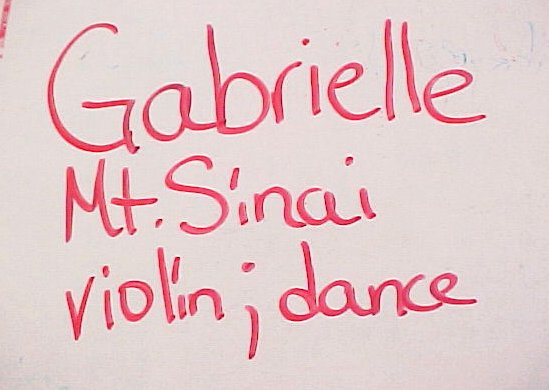 Gabrielle
Mt. Sinai
violin; dance